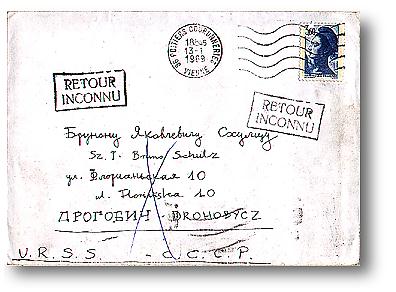 86 POITIERS COURONNERIES
18H45
13-1
1989
VIENNE
RETOUR
INCONNU
RETOUR
INCONNU
Бруному Яковлевичу
Sz. P. Bruno Schulz
ул. Флорианьская 10
ul. Floriańska 10
ДРОГОБИЧ - DROHOBYCZ
U.R.S.S. - C.C.C.P.